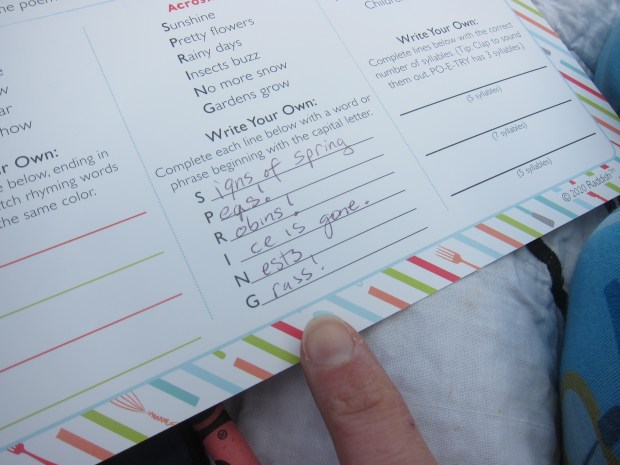 he poem
Acros
Sunshine
Pretty flowers
Rainy days
Insects buzz
No more snow
Gardens grow
Write Your Own:
Complete each line below with a word or
phrase beginning with the capital letter.
S igns of spring
P eas!
R obins!
I ce is gone.
N ests
G rass!
w
ar
how
r Own:
e below, ending in
tch rhyming words
he same color.
Childre
Write Your Own:
Complete lines below with the correct
number of syllables. (Tip: Clap to sound
them out. PO-E-TRY has 3 syllables.)
(5 syllables)
(7 syllables)
(5 syllables)
© 2020 Raddish™